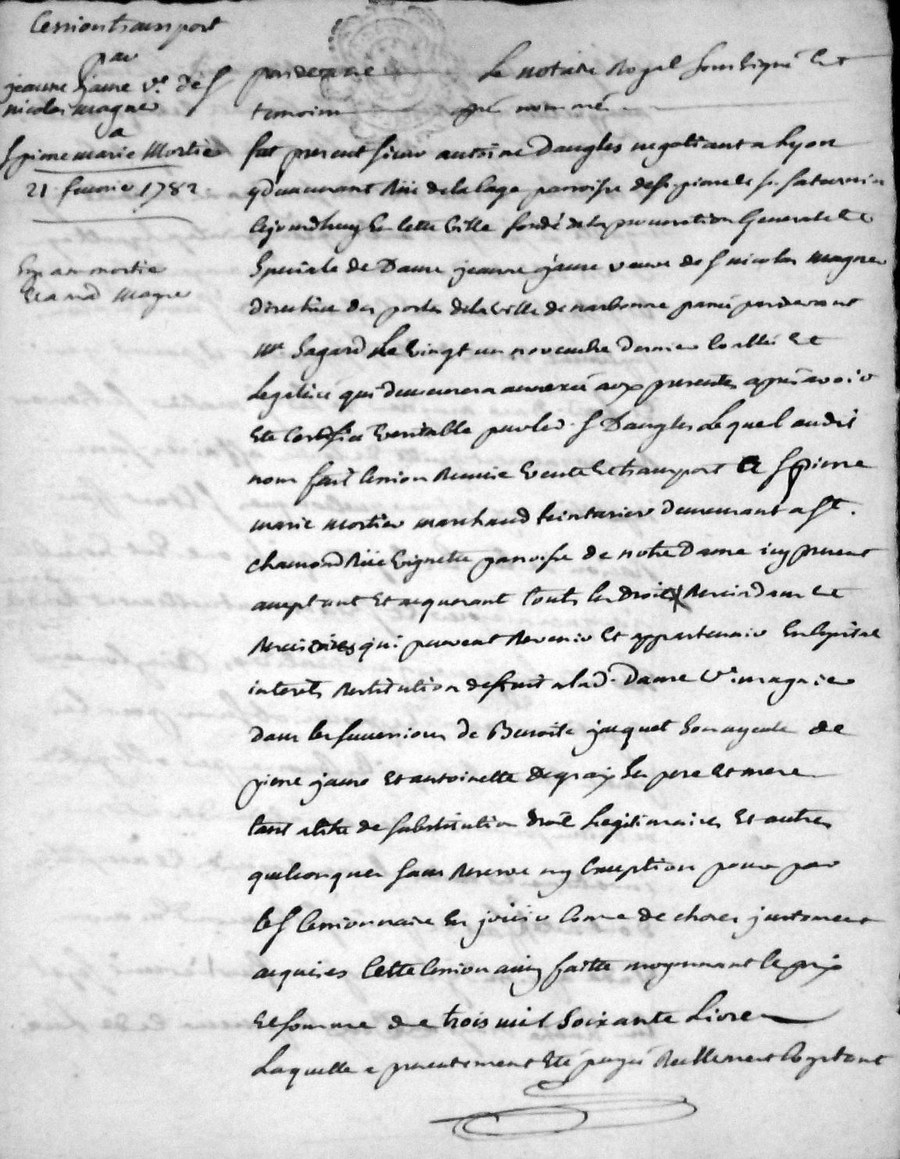 Cession transport
par
jeanne jaune v.e de S.r
nicolas magne
a
S.r pierre marie Mortier
21 fevrier 1782.
Exp. a m. mortier
et a mad. Magne
pardevant Le notaire Royal soussigné Et
temoins nommés
fut present sieur antoine Daugles negotiant a Lyon
y demeurant Rüe de la cage paroisse de S.t pierre et S.t saturnin
cejourdhuy En cette ville fondé de la procuration Generale Et
Speciale de Dame jeanne jaune veuve de S.r nicolas magne
directrice des postes de la ville de narbonne passée pardevant
M.e Sagard Le vingt un novembre dernier Controllée Et
Legalisée qui demeurera annexée aux presentes apres avoir
Eté Certifiée Veritable par led. S.r Daugles Lequel audit
nom fait Cession Remise Vente Et transport a S.r pierre
marie Mortier marchand teinturier demeurant a S.t
chamond Rüe Vignette paroisse de notre Dame icy present
acceptant Et acquerant touts les droits Rescindants Et
Rescisoires qui peuvent Revenir Et appartenir En Capital
interets Restitution de fruit a lad. Dame V.e magne
dans les successions de Benoite jacquet Son ayeule de
pierre jaune Et antoinette Degraix Ses pere Et mere
tant a titre de substitution droits Legitimaires Et autres
quelconques sans Reserve ny Exception pour par
led. S.r Cessionnaire En jouir Come de choses justement
acquises Cette Cession ainsy faitte moyennant le prix
Et somme de trois mil soixante Livres
Laquelle a presentement Eté payée Reellement Comptant